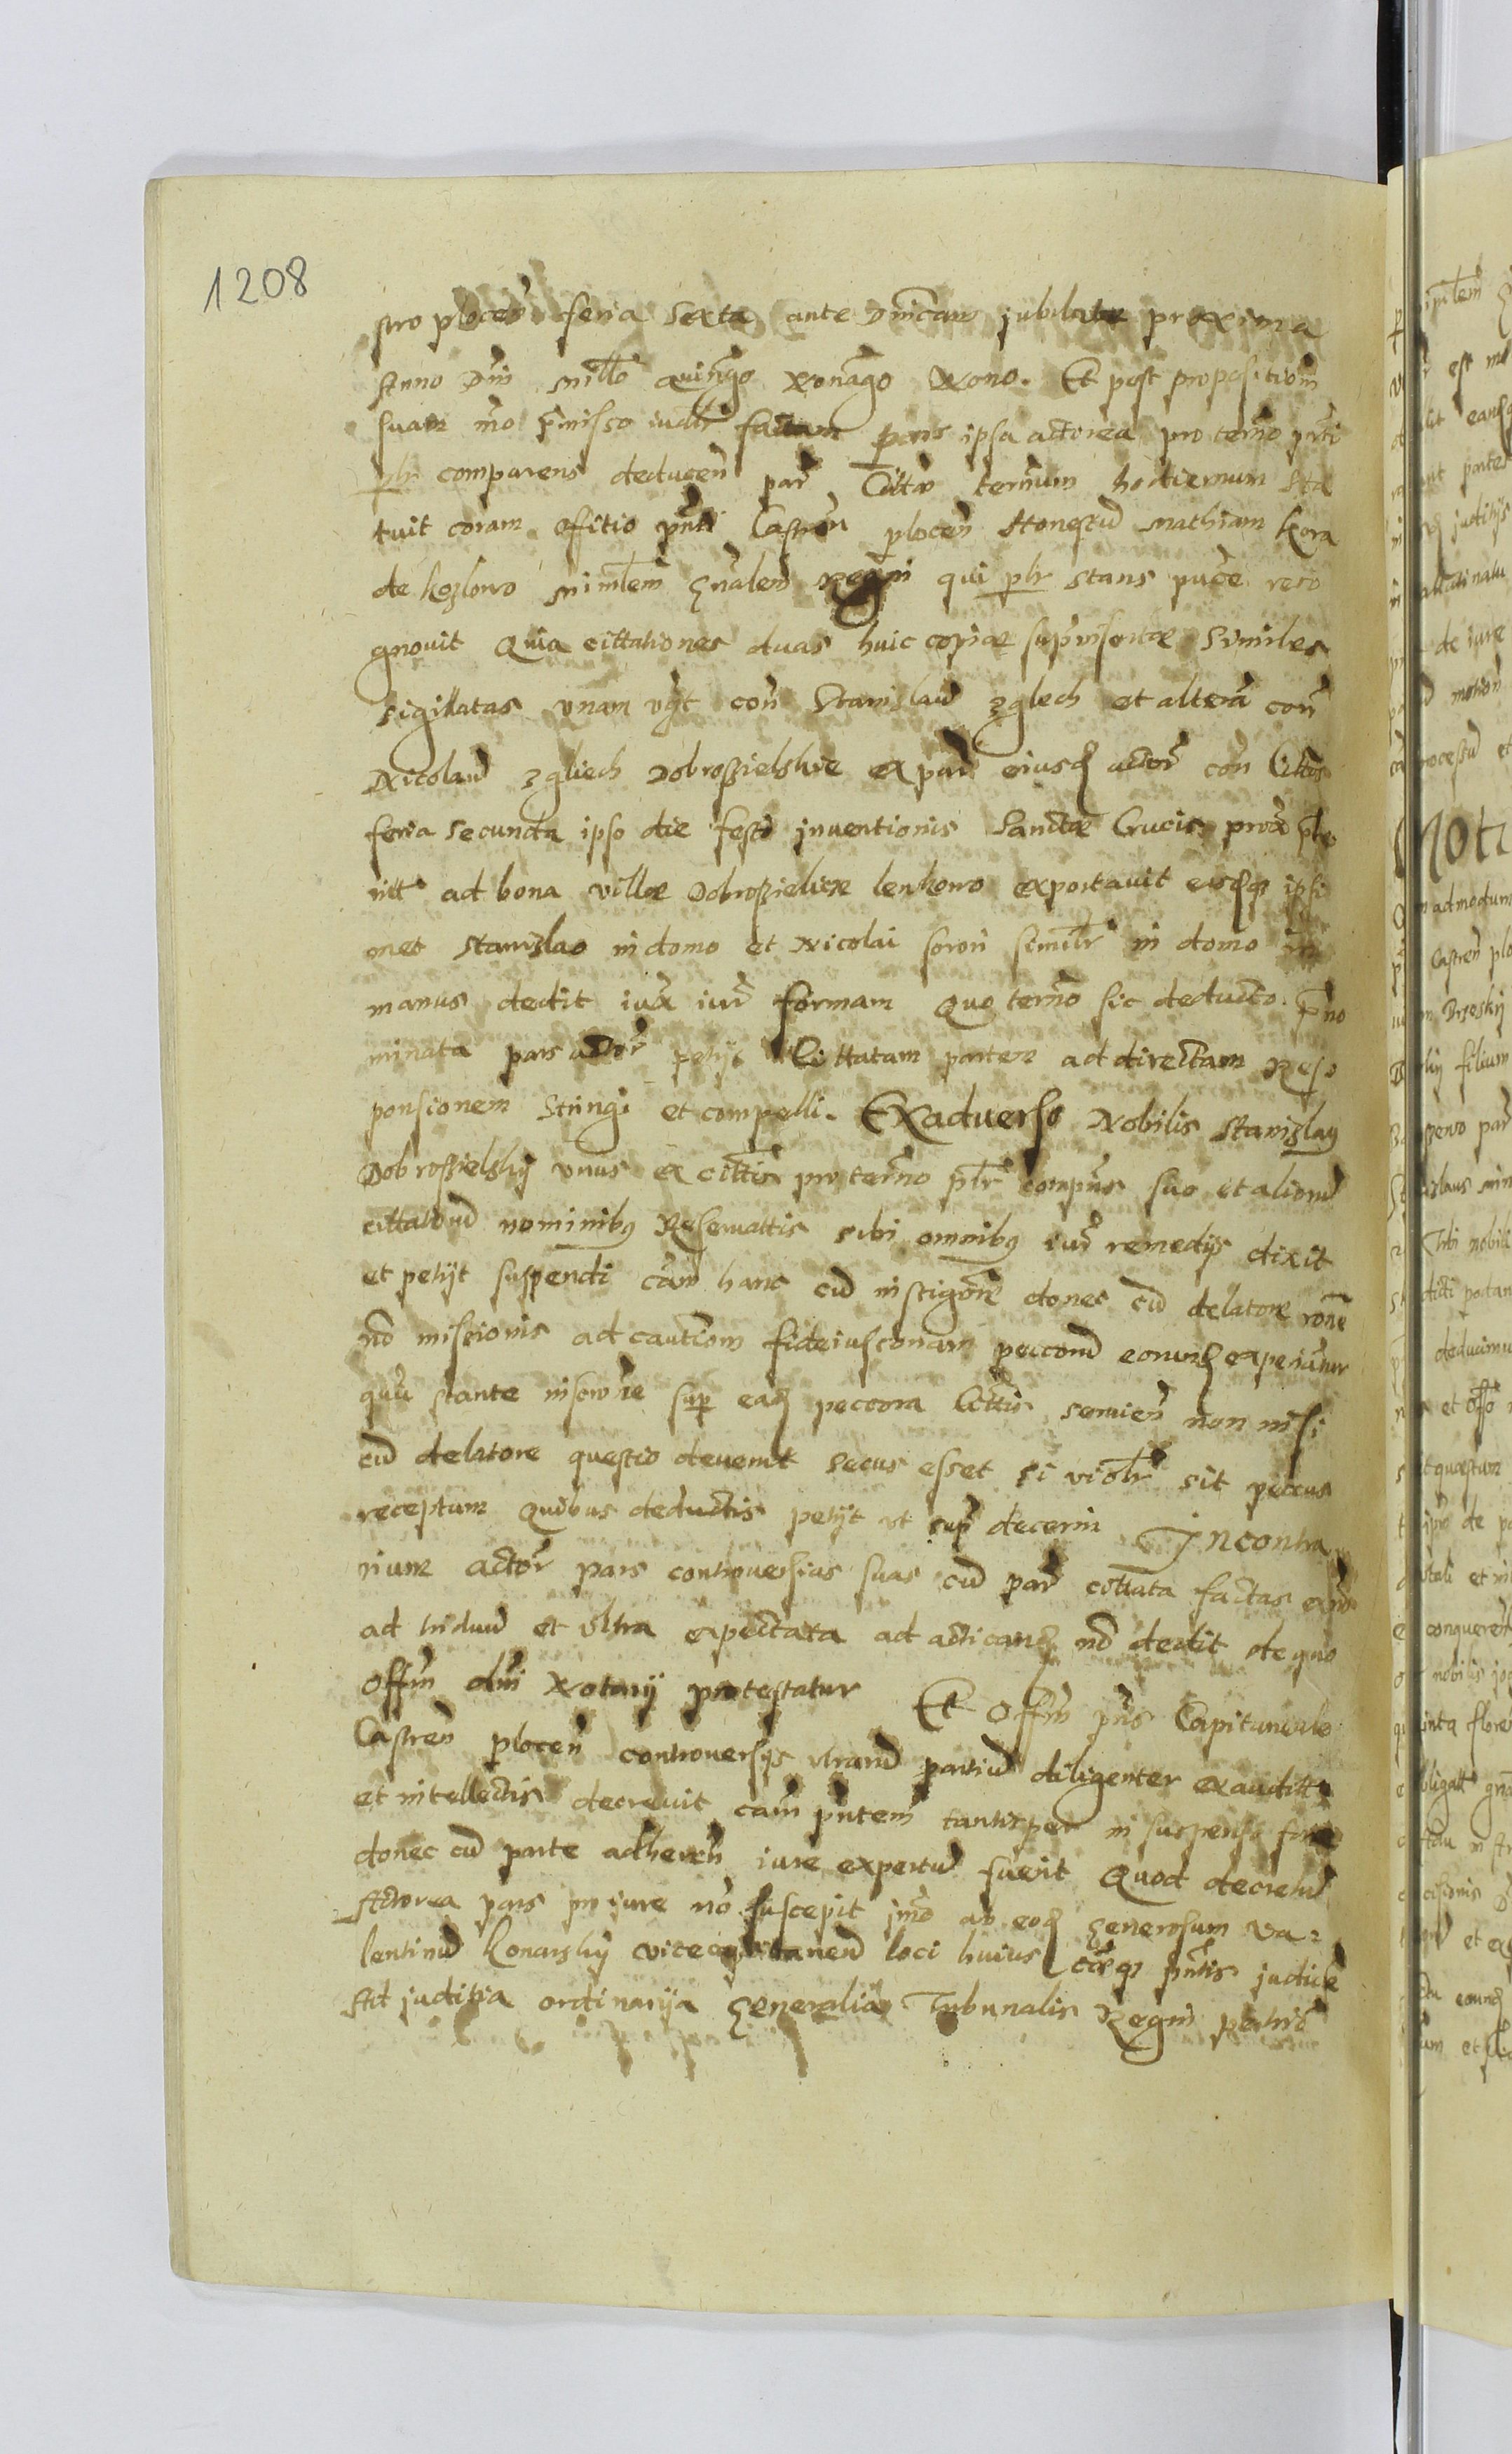 1208
stro plocen̄ feria Sexta ante Dnīcam jubilate proxima
Anno Dni millō Quingō Nonagō Nono. Et post propositiōm
suam mō pmisso iudlr factam pars ipsa actorea pro termō pnti
plr comparens deducen̄ par Cittae terminum hodiernum Sta
tuit coram Offitio pnti Castren̄ plocen̄ Honestū Mathiam kora
de kozlowo Mimlem gnalem Regni qui plr stans puce reco
gnouit Quia cittationes duas huic copiae suprinsertae Similes
Sigillatas vnam vzt con̄ Stanislaū zglech et alterā con̄
Nicolaū zgliech Dobroszielskie ex par eiusd actor con̄ Cittos
feria Secunda ipso die festo jnuentionis Sanctae Crucis prox
ad bona villae Dobrozielice lenkowo exportauit easdq ipsi
met Stanislao in domo et Nicolai sorori similr in domo in
manus dedit iuxa iur formam Quo termō sic deducto. pno
minata pars actor petijt Cittatam partem ad directam Res
ponsionem Stringi et compelli. Ex aduerso Nobilis Stanislaus
Dobroszielsky vnus ex cittis pro termō plr compns suo et aliorū
cittatorū nominibus Reseruattis sibi omnibus iur remedijs dixit
et petijt suspendi cām hanc cū instigōre donec cū delatore rōne
nō missionis ad cautiōm fideiussoriam peccorū eorund experiatur
stante inscrōne sup ead peccora Cittis non nisi
cū delatore questio deuenit secus esset si violr sit peccus
receptum Quibus deductis petijt vt sup decerni Jn contra
rium actor pars controuersias suas cū par cittata factas
ad triduū et vltra expectata ad acticand nō dedit de quo
Offm dni Notarij protestatur Et Offm pns Capituneale
Castren̄ plocen̄ controuersijs vtrarū partiū diligenter exauditt
et intellectis decreuit cām pntem tantisper in suspenso fore
donec cū parte adheren̄ iure expertū fuerit Quod decretū
Actorea pars pro iure nō suscepit jmō ab eod generosum Va
lentinū konarsky vicecapitaneū loci huius cāeq pntis judicē
Ad juditia ordinaria generalia Tribunalis Regni